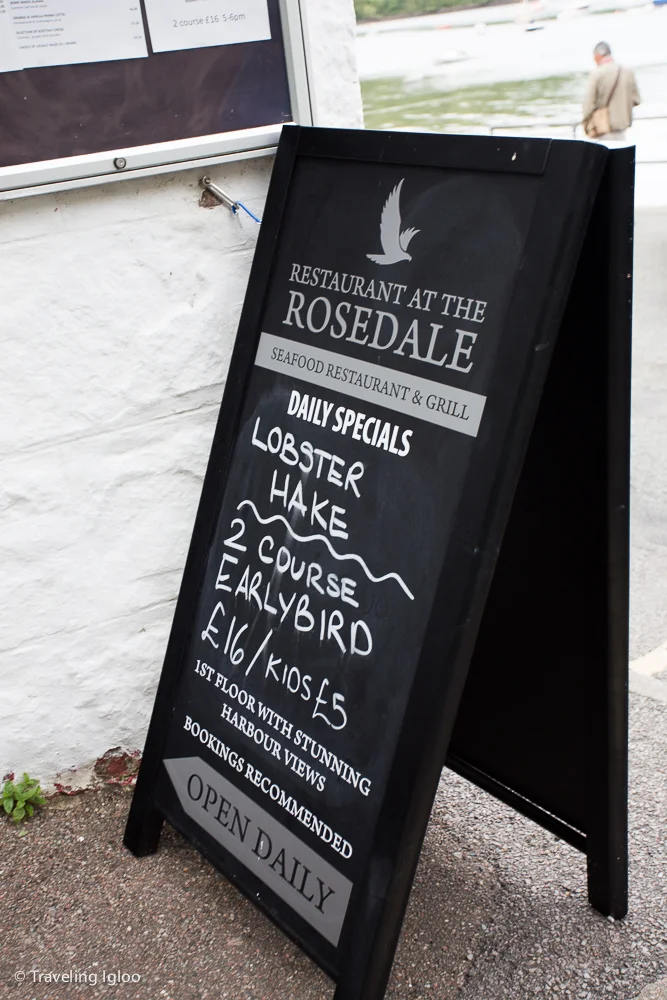 2 course £16 5-6pm
RESTAURANT AT THE
ROSEDALE
SEAFOOD RESTAURANT & GRILL
DAILY SPECIALS
LOBSTER
HAKE
2 COURSE
EARLYBIRD
£16/KIDS £5
1ST FLOOR WITH STUNNING
HARBOUR VIEWS
BOOKINGS RECOMMENDED
OPEN DAILY
© Traveling Igloo